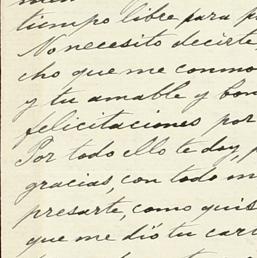 tiempo libre para p
No necesito decirte,
cho que me conmo
y tu amable y bon
felicitaciones por
Por todo ello te doy, p
gracias, con todo m
presarte, como quis
que me dió tu car